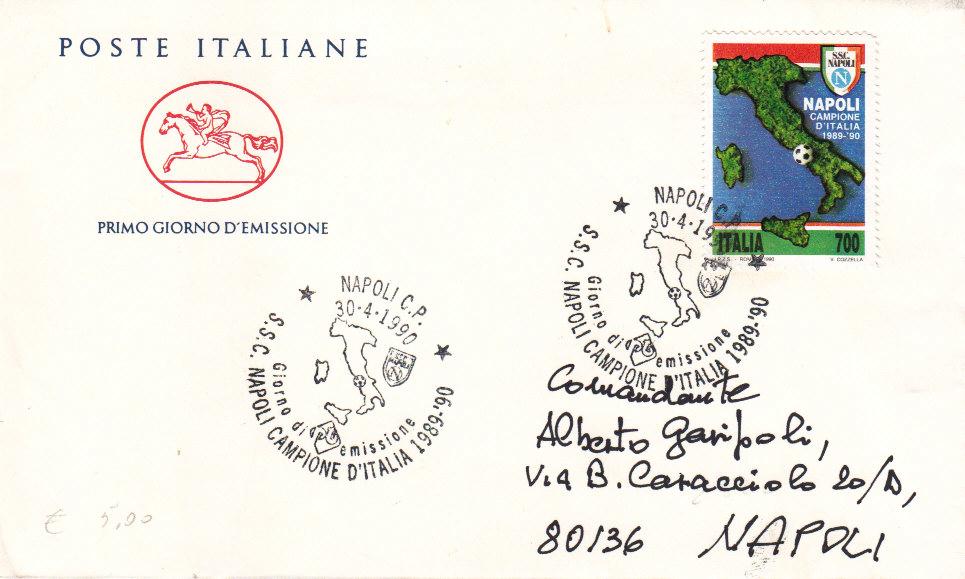 POSTE ITALIANE
PRIMO GIORNO D'EMISSIONE
S.S.C. NAPOLI
N
NAPOLI
CAMPIONE
D'ITALIA
1989-'90
ITALIA 700
I.P.Z.S. - ROMA - 1990 V. COZZELLA
NAPOLI C.P.
30-4-1990
Giorno di emissione
S.S.C. NAPOLI CAMPIONE D'ITALIA 1989-'90
NAPOLI C.P.
30-4-1990
S.S.C. N
Giorno di emissione
S.S.C. NAPOLI CAMPIONE D'ITALIA 1989-'90
Comandante
Alberto Garipoli,
Via B. Caracciolo 20/D,
80136 NAPOLI
€ 5,00